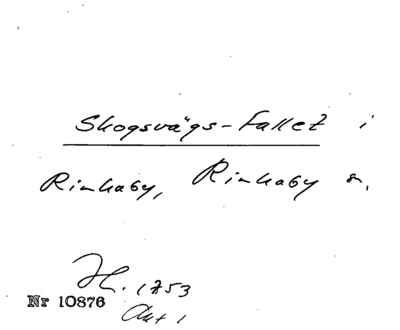 Skogsvägs-Fallet i
Rinkaby, Rinkaby s.
H. 1753
Nr 10876
Akt 1